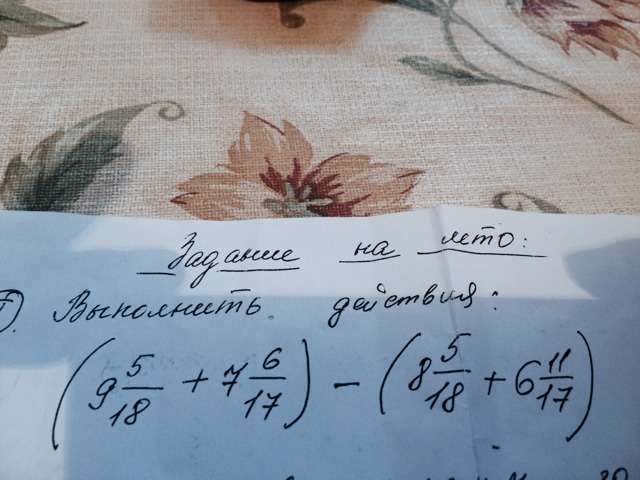 Задание на лето:
I. Выполнить действия:
(9 5/18 + 7 6/17) - (8 5/18 + 6 11/17)